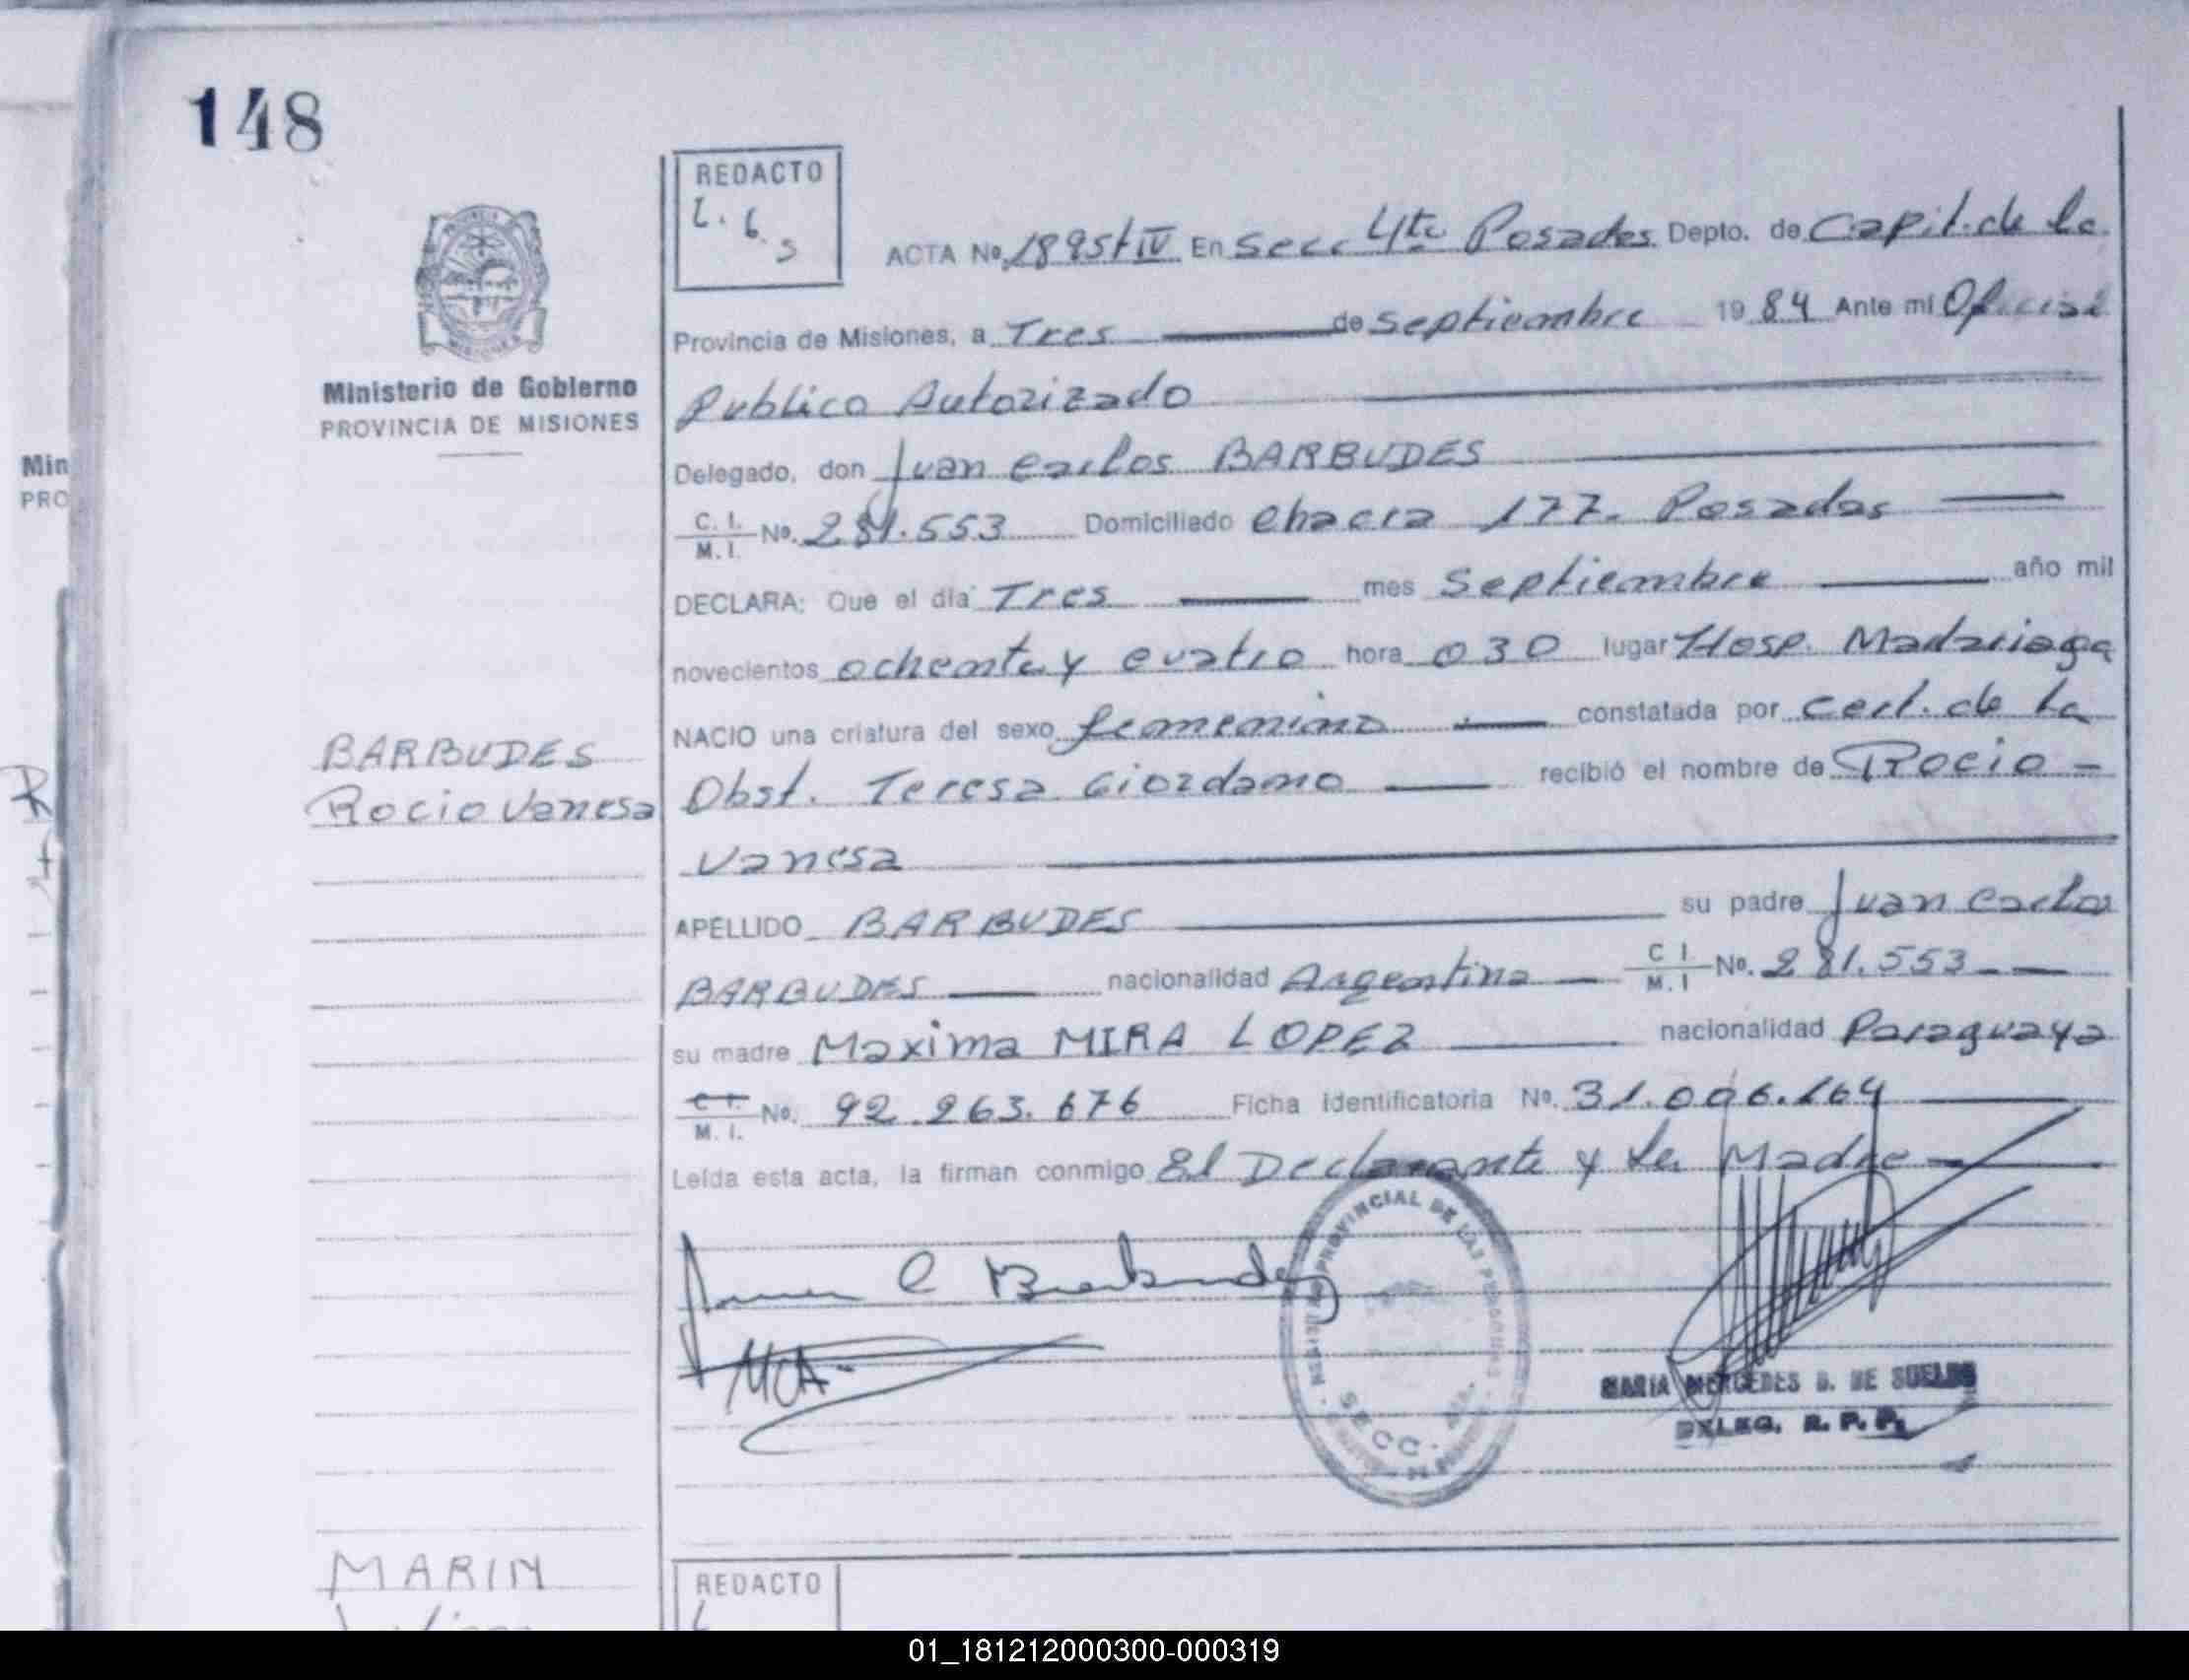 148
REDACTO
L. G. S
ACTA Nº 1895/IV En Secc 4ta Posadas Depto. de Capit. de la
Provincia de Misiones, a Tres de Septiembre 1984 Ante mi Oficial
Publico Autorizado
Ministerio de Gobierno
PROVINCIA DE MISIONES
Delegado, don Juan Carlos BARBUDES
C. I. M. I. Nº. 281.553 Domiciliado Chacra 177. Posadas
DECLARA: Que el día Tres mes Septiembre año mil
novecientos ochenta y cuatro hora 030 lugar Hosp. Madariaga
NACIO una criatura del sexo femenino constatada por Cert. de la
Obst. Teresa Giordano recibió el nombre de Rocio -
Vanesa
BARBUDES
Rocio Vanesa
APELLIDO BARBUDES su padre Juan Carlos
BARBUDES nacionalidad Argentina C I. M. I Nº. 281.553
su madre Maxima MIRA LOPEZ nacionalidad Paraguaya
C I. M. I. Nº. 92.263.676 Ficha identificatoria Nº. 31.006.164
Leída esta acta, la firman conmigo El Declarante y la Madre
Juan C Barbudes
PROVINCIAL DE LAS PERSONAS
SECC.
MARIA MERCEDES B. DE SUELDO
DELEG. R. P. P.
MARIN
REDACTO
Min
PRO
01_181212000300-000319